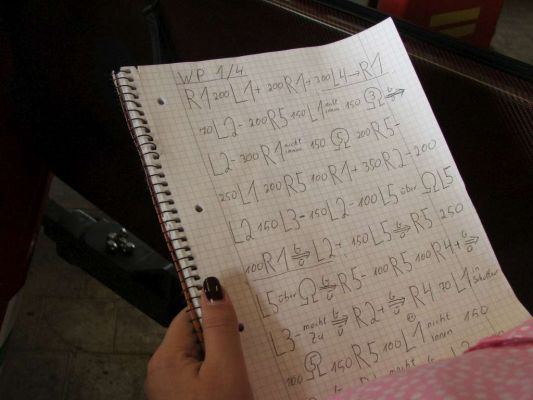 WP 1/4
R1 200 L1+ 200 R1+ 200 L4→R1
70 L2- 200 R5 150 L1 nicht innen 150 Ω 3 ⇒
L2- 300 R1 nicht innen 150 Ω 200 R5-
250 L1 200 R5 100 R1+ 350 R2- 200
L2 150 L3- 150 L2- 100 L5 über Ω L5
100 R1 ⇒ L2+ 150 L5 ⇒ R5 250
L5 über Ω ⇒ R5- 100 R5 100 R4+ ⇒
L3- macht zu ⇒ R2+ ⇒ R4 70 L1 ü. Schotter
100 Ω 5 150 R5 100 L1 nicht innen 150